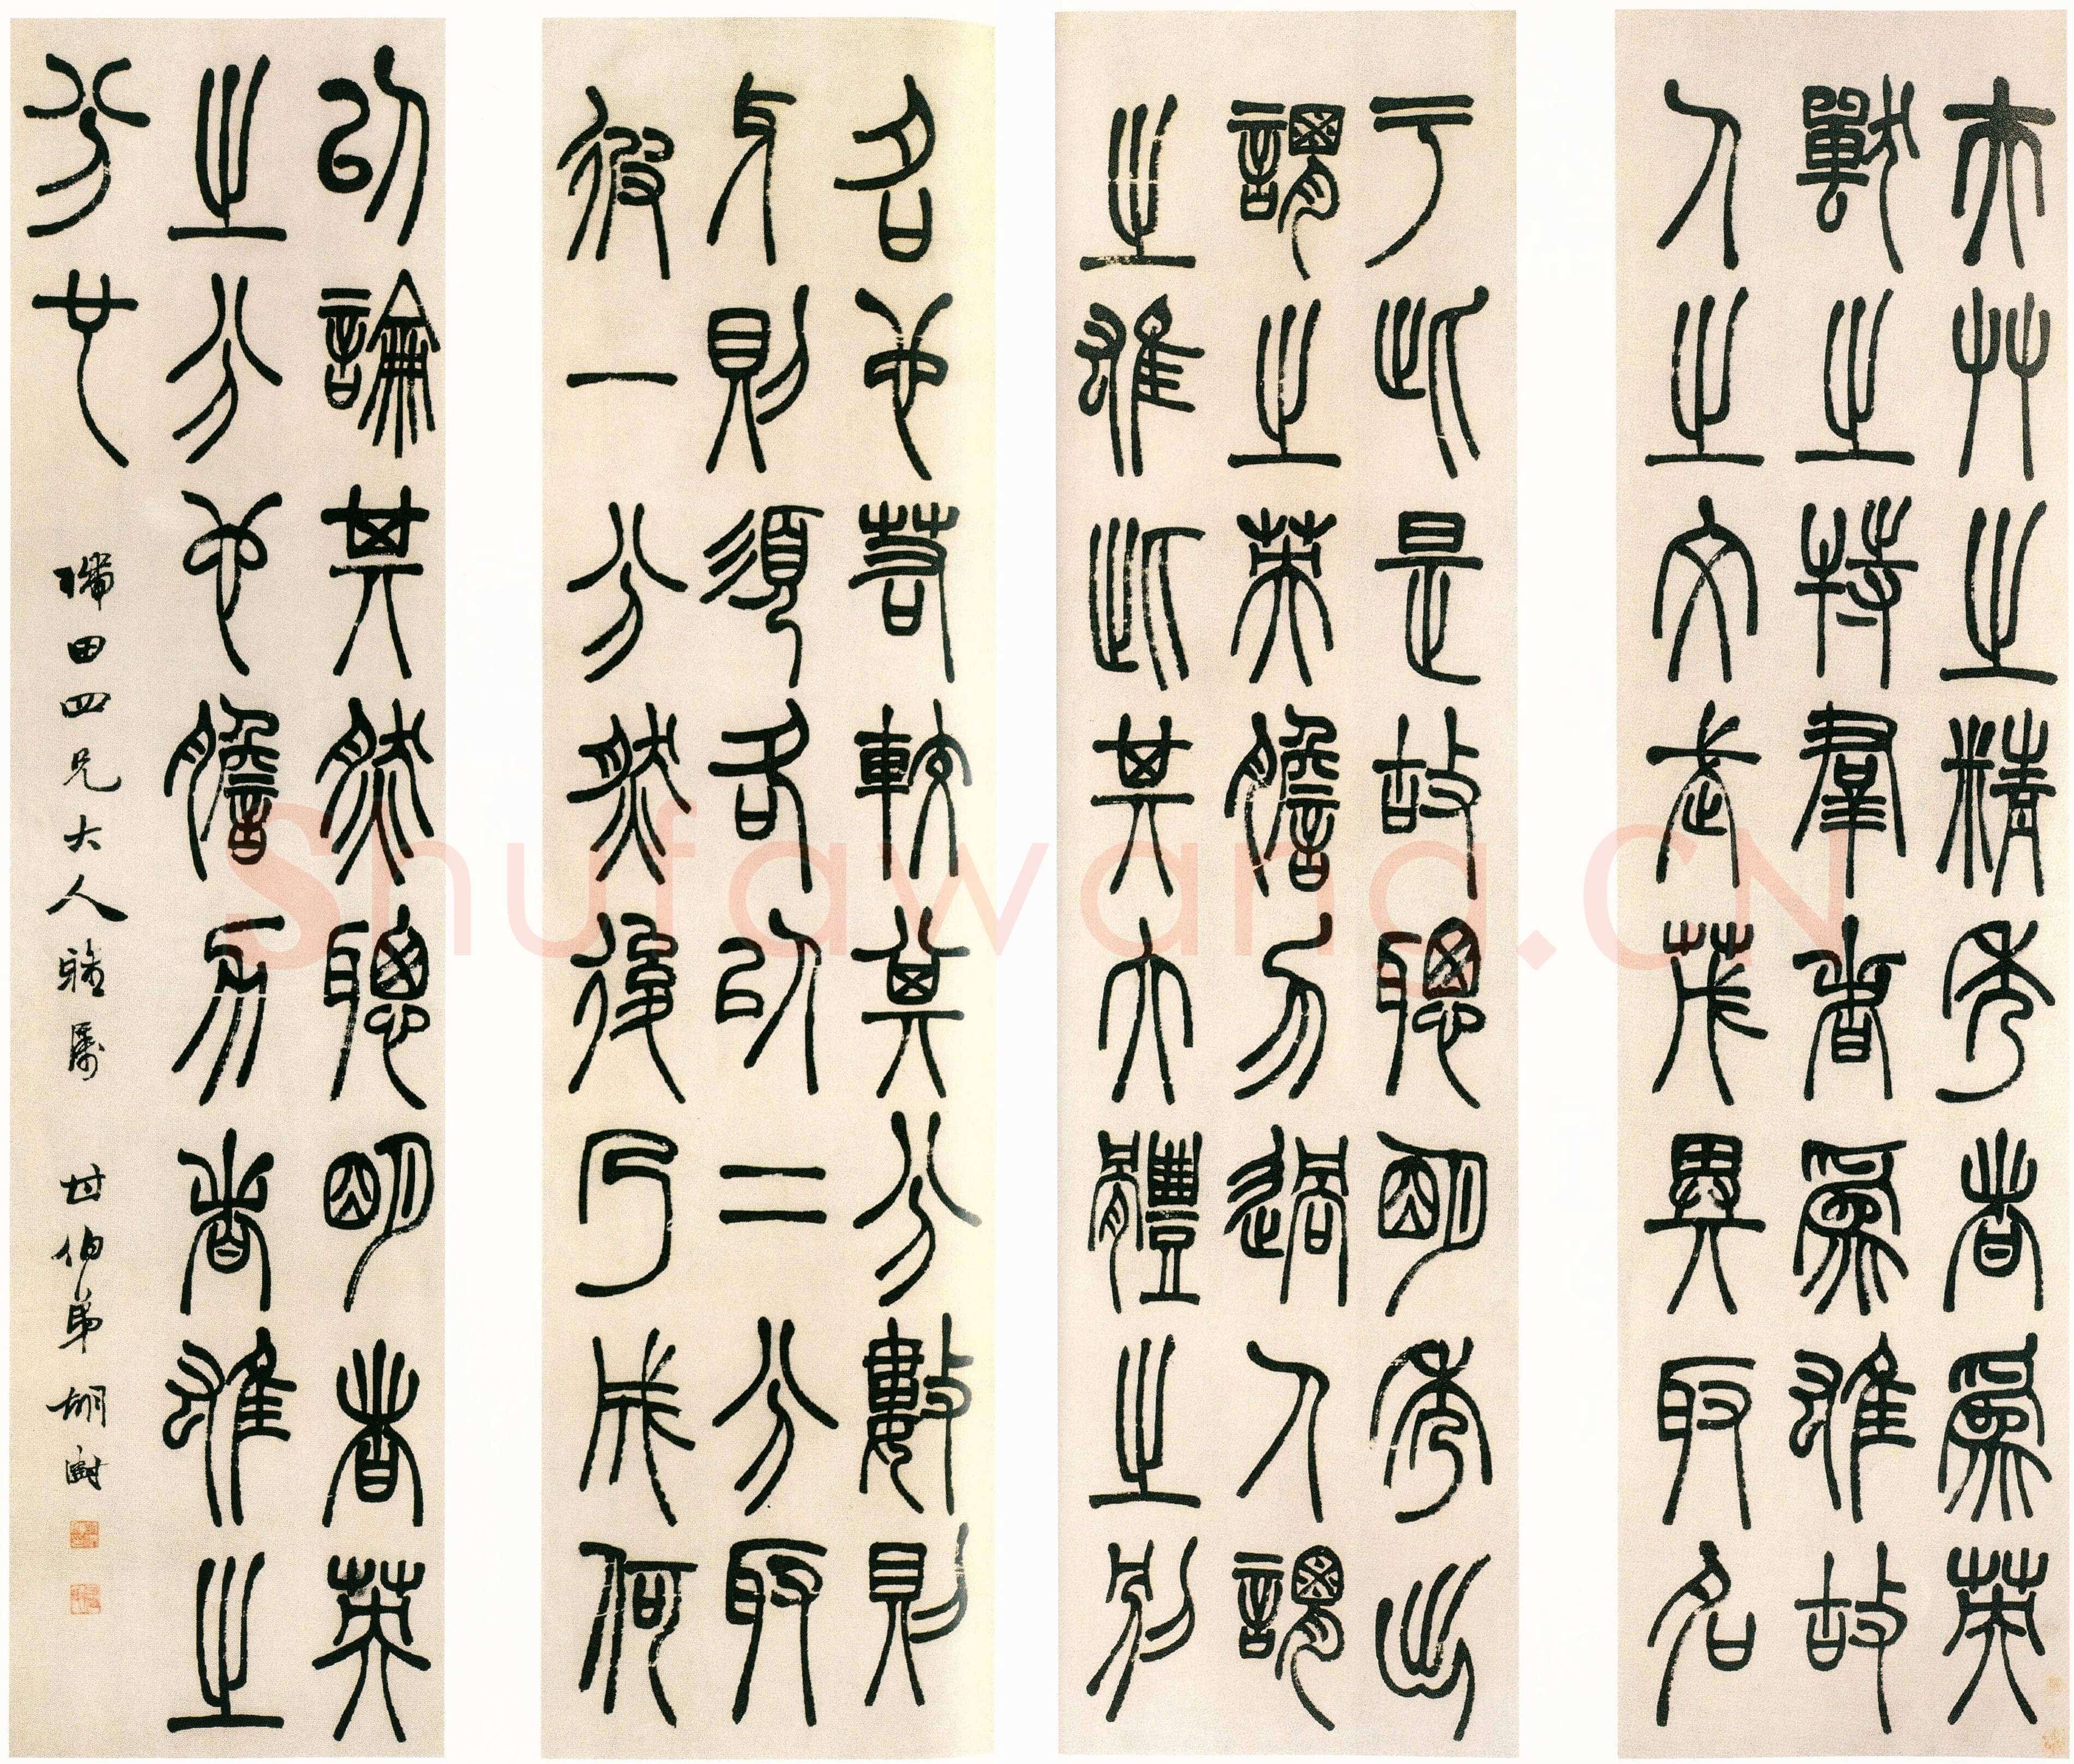 夫艸之精秀者爲英
獸之特羣者爲雄故
人之文武茂異取名
于此是故聰明秀出
謂之英膽力過人謂
之雄此其大體之別
名也若較其分數則
牙則須各以二分取
彼一分然後乃成何
以論其然聰明者英
之分也膽力者雄之
分也
田四兄大人雅屬 甘伯弟胡澍
Shufawang.CN